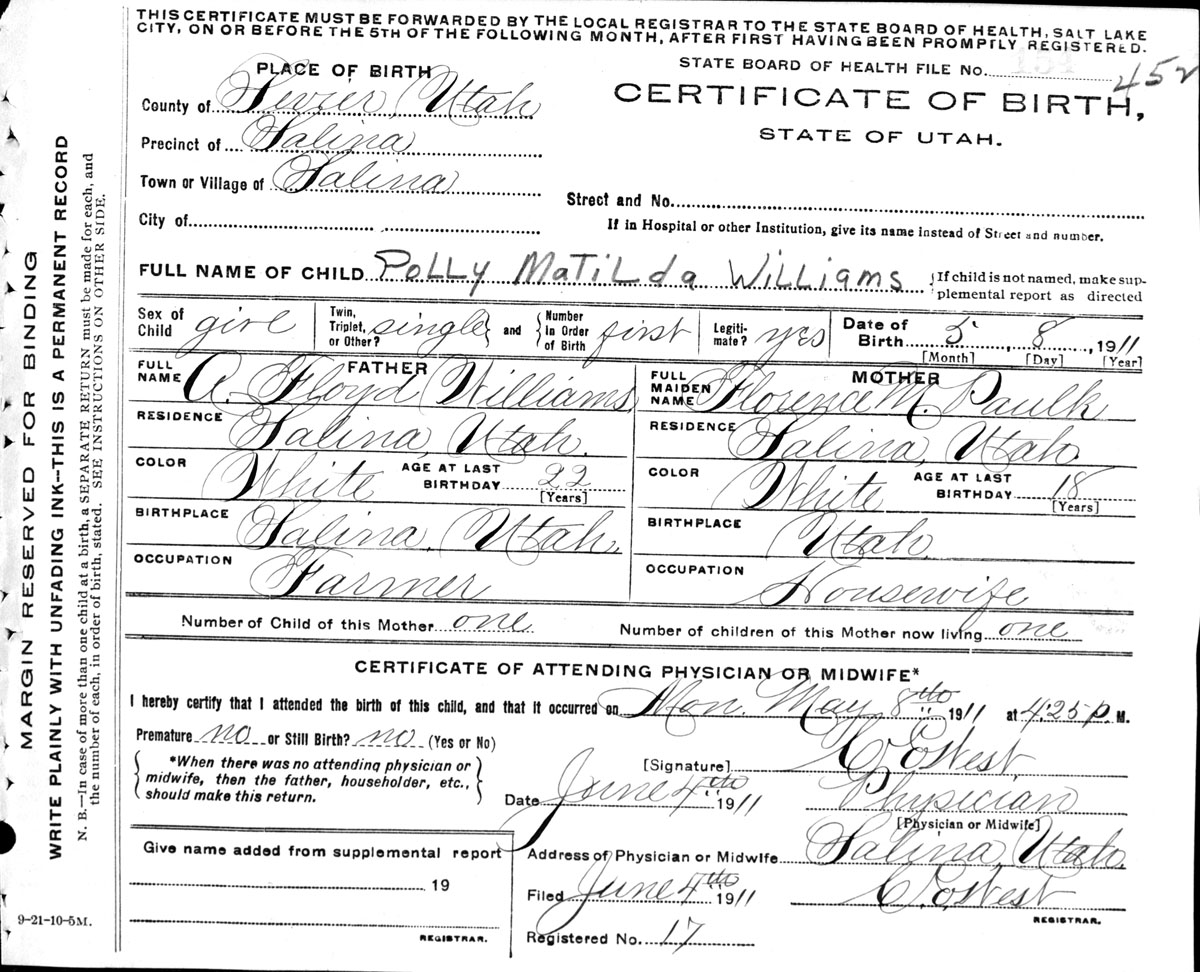 THIS CERTIFICATE MUST BE FORWARDED BY THE LOCAL REGISTRAR TO THE STATE BOARD OF HEALTH, SALT LAKE
CITY, ON OR BEFORE THE 5TH OF THE FOLLOWING MONTH, AFTER FIRST HAVING BEEN PROMPTLY REGISTERED.
STATE BOARD OF HEALTH FILE NO. 452
CERTIFICATE OF BIRTH,
STATE OF UTAH.
PLACE OF BIRTH
County of Sevier, Utah
Precinct of Salina
Town or Village of Salina
City of
Street and No.
If in Hospital or other Institution, give its name instead of Street and number.
FULL NAME OF CHILD POLLY MATILDA WILLIAMS {If child is not named, make sup-
plemental report as directed
Sex of Child girl Twin, Triplet, or Other? single} and {Number in Order of Birth first Legiti-mate? yes Date of Birth 5, 8, 1911
[Month] [Day] [Year]
FATHER
FULL NAME A. Floyd Williams
RESIDENCE Salina, Utah.
COLOR White AGE AT LAST BIRTHDAY 22
[Years]
BIRTHPLACE Salina, Utah.
OCCUPATION Farmer
MOTHER
FULL MAIDEN NAME Florence M. Paulk
RESIDENCE Salina, Utah
COLOR White AGE AT LAST BIRTHDAY 18
[Years]
BIRTHPLACE Utah
OCCUPATION Housewife
Number of Child of this Mother one Number of children of this Mother now living one
CERTIFICATE OF ATTENDING PHYSICIAN OR MIDWIFE*
I hereby certify that I attended the birth of this child, and that it occurred on Mon. May 8th 1911 at 4:25 P. M.
Premature no or Still Birth? no (Yes or No)
{*When there was no attending physician or
midwife, then the father, householder, etc.,
should make this return.}
[Signature] C. E. West.
Date June 4th 1911 Physician
[Physician or Midwife]
Address of Physician or Midwife Salina, Utah.
Filed June 4th 1911 C. E. West
REGISTRAR.
Registered No. 17
Give name added from supplemental report
19
REGISTRAR.
MARGIN RESERVED FOR BINDING
WRITE PLAINLY WITH UNFADING INK--THIS IS A PERMANENT RECORD
N. B.—In case of more than one child at a birth, a SEPARATE RETURN must be made for each, and
the number of each, in order of birth, stated. SEE INSTRUCTIONS ON OTHER SIDE.
9-21-10-5M.